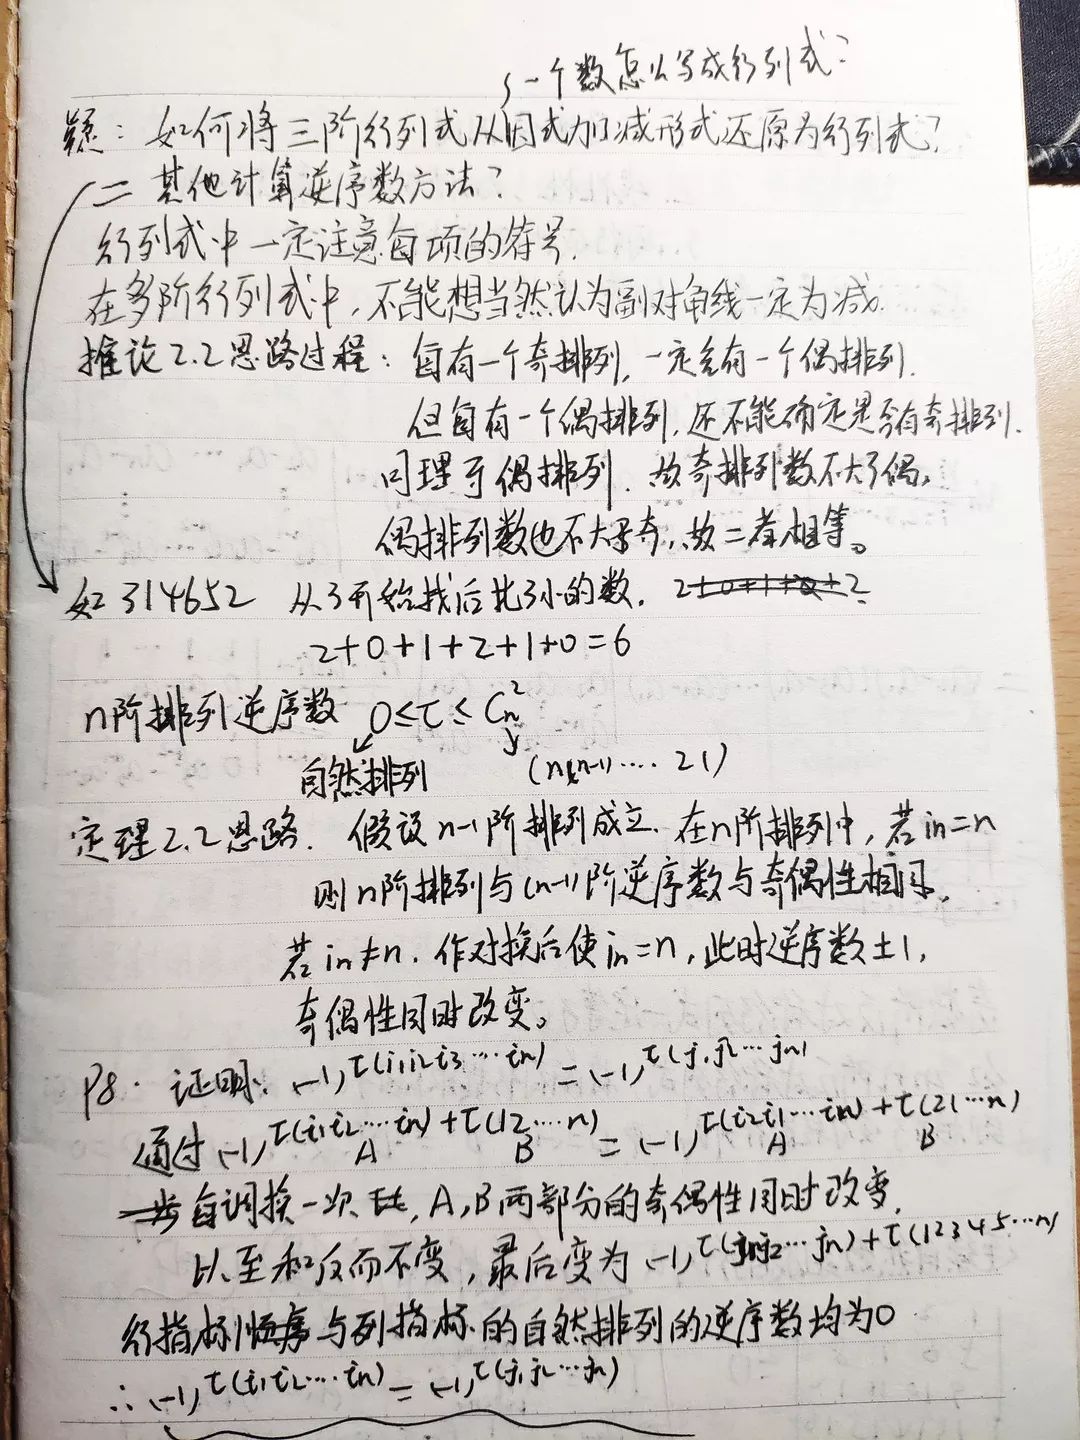 一个数怎么写成行列式?
疑: 如何将三阶行列式从因式加减形式还原为行列式?
二 其他计算逆序数方法?
行列式中一定注意每项的符号.
在多阶行列式中, 不能想当然认为副对角线一定为减.
推论2.2思路过程: 每有一个奇排列, 一定会有一个偶排列.
但每有一个偶排列, 还不能确定是否有奇排列.
同理于偶排列. 故奇排列数不大于偶。
偶排列数也不大于奇, 故二者相等。
如 314652 从3开始找后比3小的数. 2+0+1+2+2
2+0+1+2+1+0=6
n阶排列逆序数 0≤τ≤Cn²
自然排列 (n(n-1)····21)
定理2.2思路. 假设n-1阶排列成立. 在n阶排列中, 若in=n
则n阶排列与(n-1)阶逆序数与奇偶性相同.
若in≠n. 作对换后使in=n, 此时逆序数±1,
奇偶性同时改变。
P8. 证明: (-1)^τ(i1i2i3····in) = (-1)^τ(j1j2···jn)
通过 (-1)^τ(i1i2····in)+τ(12····n) = (-1)^τ(i2i1···in)+τ(21···n)
A B A B
每调换一次, A,B两部分的奇偶性同时改变,
以至和反而不变, 最后变为 (-1)^τ(j1j2···jn)+τ(12345···n)
行指标顺序与列指标的自然排列的逆序数均为0
∴ (-1)^τ(i1i2····in) = (-1)^τ(j1j2···jn)